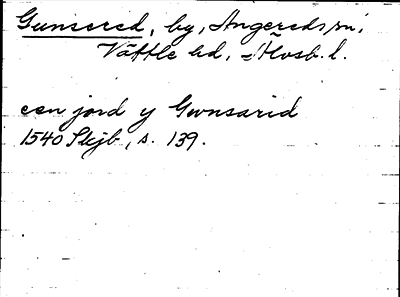 Gunsered, by, Angereds sn,
Vättle hd, Älvsb. l.
een jord y Gwnsarid
1540 Skjb, s. 139.